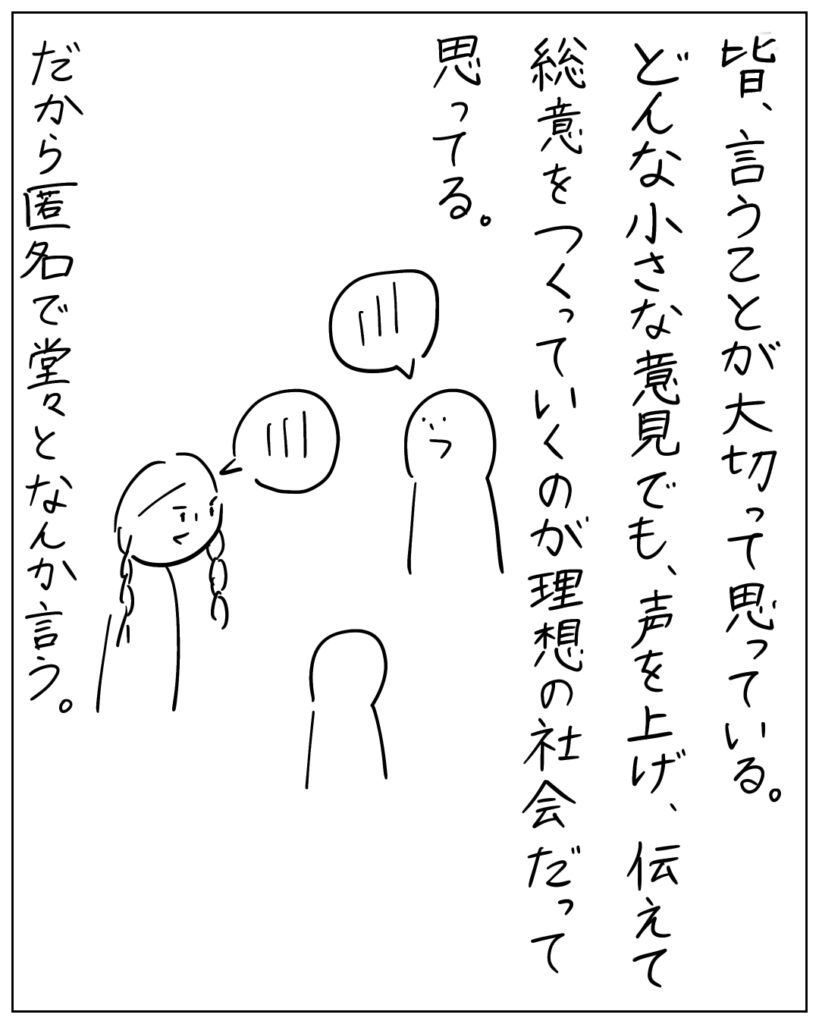 皆、言うことが大切って思っている。
どんな小さな意見でも、声を上げ、伝えて
総意をつくっていくのが理想の社会だって
思ってる。
だから匿名で堂々となんか言う。